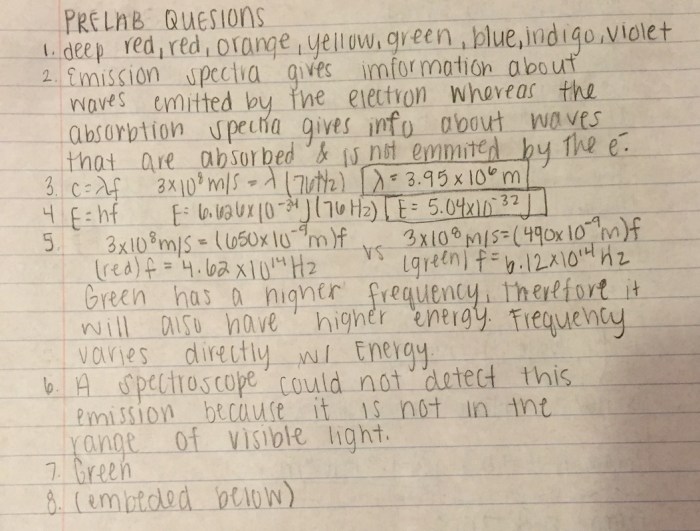 PRELAB QUESIONS
1. deep red, red, orange, yellow, green, blue, indigo, violet
2. Emission spectra gives imformation about
waves emitted by the electron whereas the
absorbtion spectra gives info about waves
that are absorbed & is not emmited by the e⁻.
3. c=λf 3x10⁸m/s = λ (76Hz) λ = 3.95 x 10⁶ m
4 E=hf E= 6.626x10⁻³⁴J(76Hz) E= 5.04x10⁻³²J
5. 3x10⁸m/s = (650x10⁻⁹m)f vs 3x10⁸m/s=(490x10⁻⁹m)f
(red) f = 4.62 x10¹⁴Hz (green) f=6.12x10¹⁴Hz
Green has a higher frequency, therefore it
will also have higher energy. Frequency
varies directly w/ Energy.
6. A spectroscope could not detect this
emission because it is not in the
range of visible light.
7. Green
8. (embeded below)